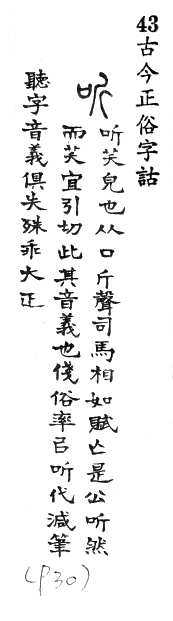 43 古今正俗字詁
听
听笑皃也从口斤聲司馬相如賦亡是公听然
而笑宜引切此其音義也俴俗率㠯听代減筆
聽字音義俱失殊乖大正
(P30)